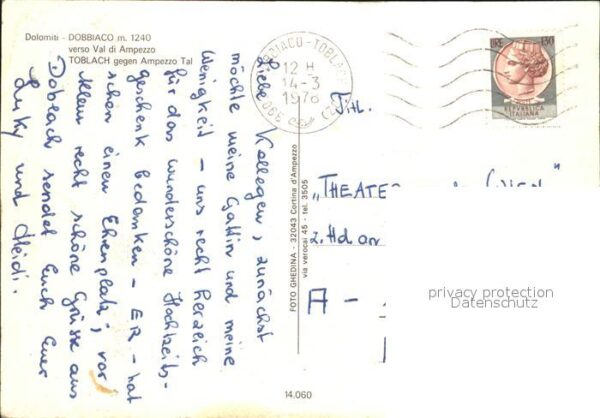 Dolomiti - DOBBIACO m. 1240
verso Val di Ampezzo
TOBLACH gegen Ampezzo Tal
DOBBIACO-TOBLACH
12 H
14-3
1978
LIRE 130
REPVBBLICA
ITALIANA
Liebe Kollegen, zunächst
möchte meine Gattin und meine
Wenigkeit - uns recht herzlich
für das wunderschöne Hochzeits-
geschenk bedanken - ER - hat
schon einen Ehrenplatz; vor
allem recht schöne Grüsse aus
Toblach sendet Euch Euer
Luky und Heidi.
Titl.
"THEATER
z. Hd
A -
FOTO GHEDINA - 32043 Cortina d'Ampezzo
via verocai 45 - tel. 3505
14.060
privacy protection
Datenschutz